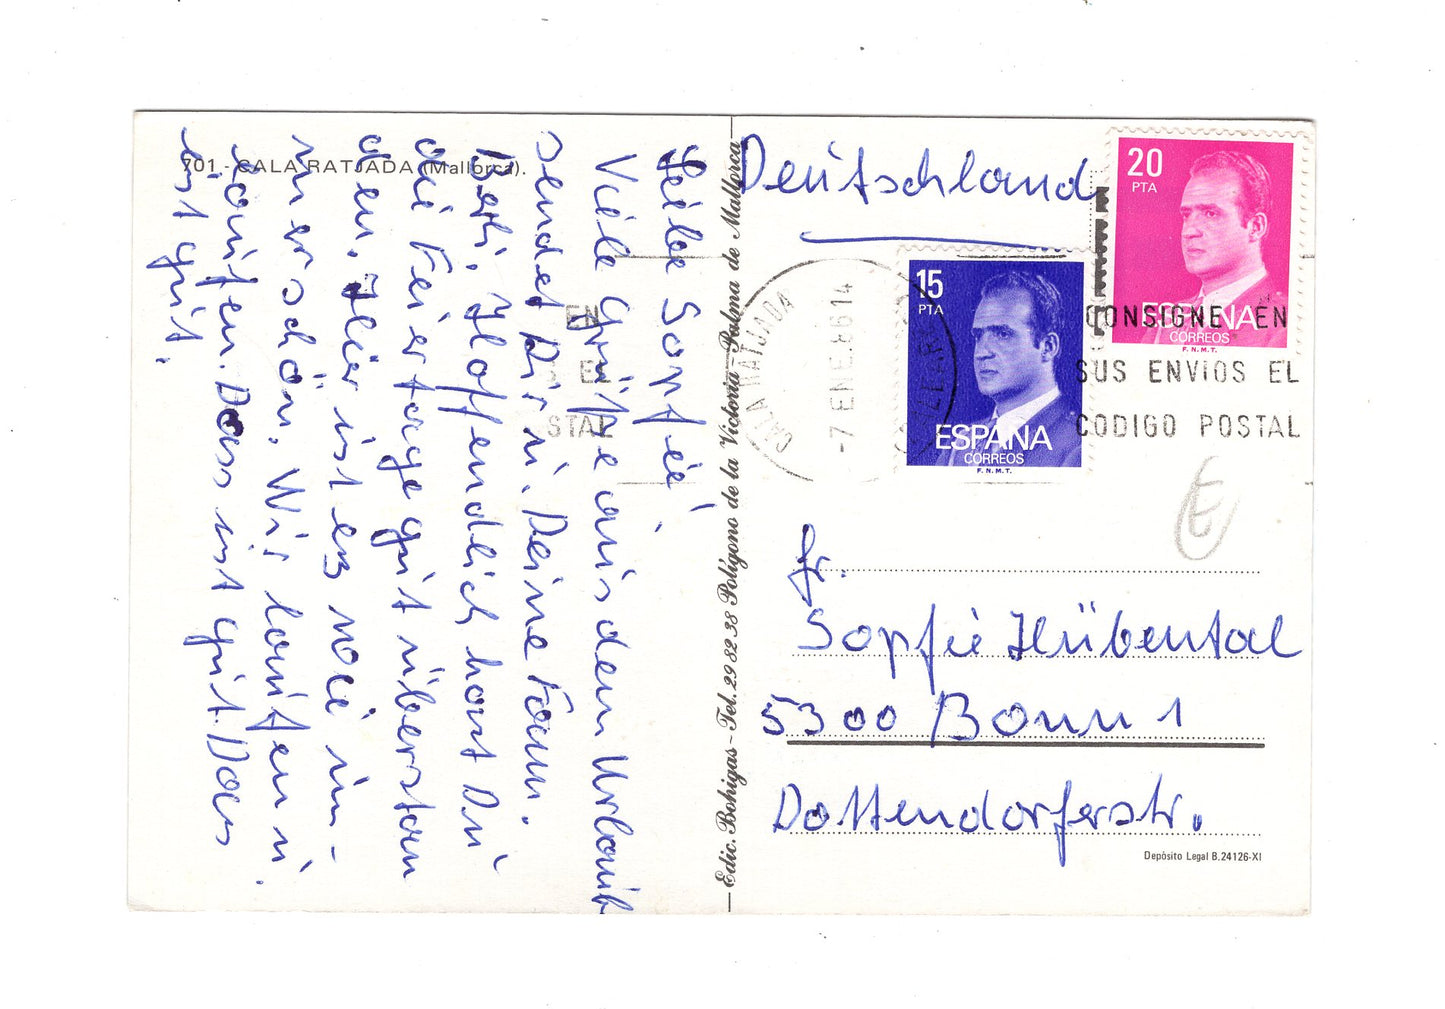 701 - CALA RATJADA (Mallorca).
Liebe Sopfie,
Viele Grüße aus dem Urlaub
sendet Dir u. Deine Fam.
Hoffendlich hast Du
die Feiertage gut überstan
den. Hier ist es noch im-
mer schön. Wir laufen u.
laufen. Dass ist gut. Das
ist gut.
Edic. Bohigas - Tel. 29 82 38 Polígono de la Victoria - Palma de Mallorca
Deutschland
20
PTA
ESPAÑA
CORREOS
F.N.M.T.
15
PTA
ESPAÑA
CORREOS
F.N.M.T.
CALA RATJADA
-7 ENE. 86 14
CONSIGNE EN
SUS ENVIOS EL
CODIGO POSTAL
EN
EL
STAL
fr.
Sopfie Hübental
5300 Bonn 1
Dottendorferstr.
Depósito Legal B.24126-XI